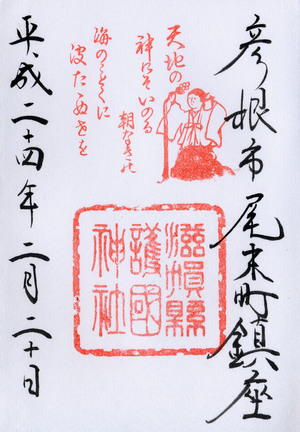 彦根市尾末町鎮座
天地の
神にそいのる
朝なきの
海のことくに
波たゝぬ世を
滋賀縣
護國
神社
平成二十四年二月二十日